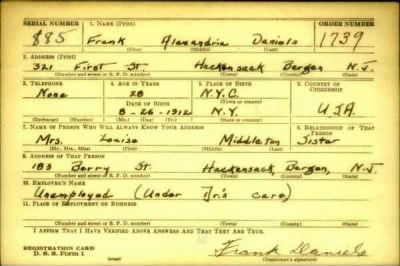 SERIAL NUMBER 1. NAME (Print) ORDER NUMBER
885 Frank Alexandria Daniels 1739
(First) (Middle) (Last)
2. ADDRESS (Print)
321 First St. Hackensack Bergen N.J.
(Number and street or R. F. D. number) (Town) (County) (State)
3. TELEPHONE 4. AGE IN YEARS 5. PLACE OF BIRTH 6. COUNTRY OF CITIZENSHIP
None 28 N.Y.C.
DATE OF BIRTH (Town or county)
8-26-1912 N.Y. USA
(Exchange) (Number) (Mo.) (Day) (Yr.) (State or country)
7. NAME OF PERSON WHO WILL ALWAYS KNOW YOUR ADDRESS 8. RELATIONSHIP OF THAT PERSON
Mrs. Louise Middleton Sister
(Mr., Mrs., Miss) (First) (Middle) (Last)
9. ADDRESS OF THAT PERSON
183 Berry St. Hackensack, Bergen, N.J.
(Number and street or R. F. D. number) (Town) (County) (State)
10. EMPLOYER'S NAME
Unemployed (Under Dr.'s care)
11. PLACE OF EMPLOYMENT OR BUSINESS
(Number and street or R. F. D. number) (Town) (County) (State)
I AFFIRM THAT I HAVE VERIFIED ABOVE ANSWERS AND THAT THEY ARE TRUE.
REGISTRATION CARD
D. S. S. Form 1 Frank Daniels
(over) (Registrant's signature)